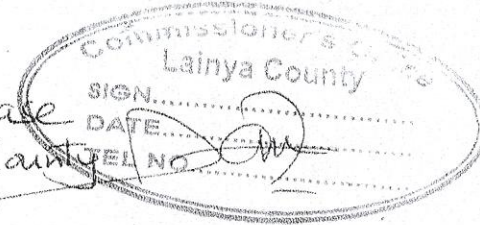 Commissioner's Office
Lainya County
SIGN....................
DATE....................
TEL NO....................
ounty